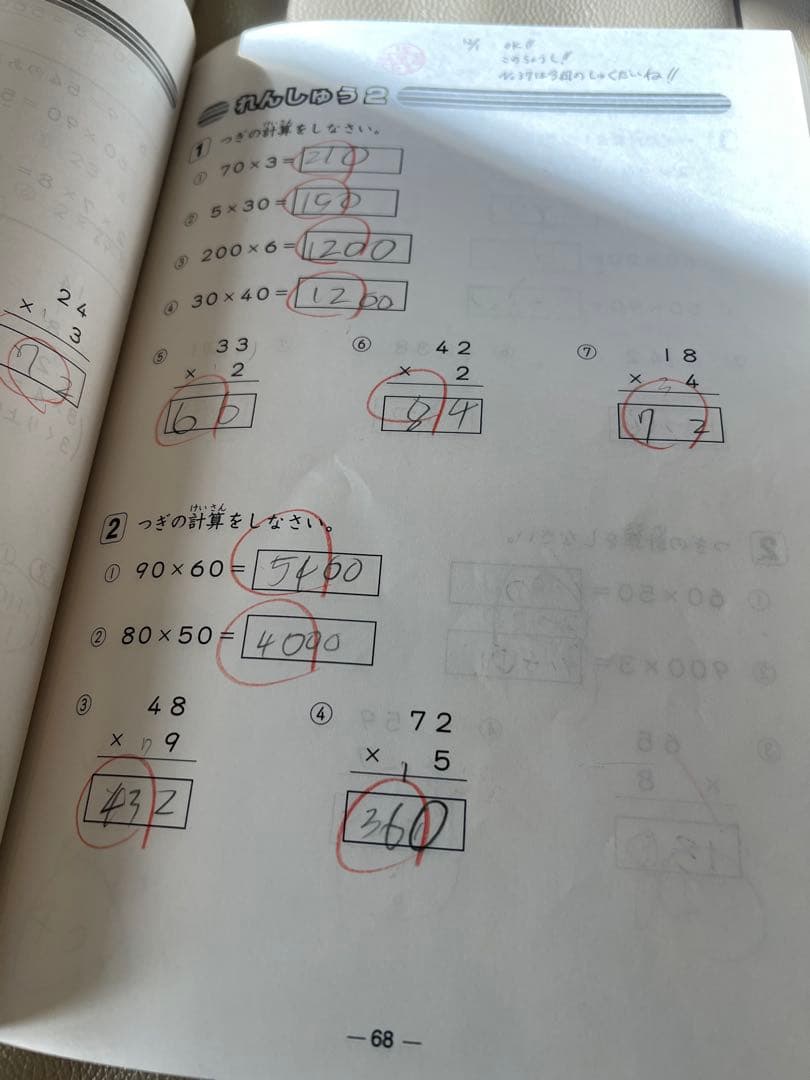 OK!!
このちょうし!!
れんしゅう2
1 つぎの計算をしなさい。
① 70×3=210
② 5×30=150
③ 200×6=1200
④ 30×40=1200
⑤ 33
× 2
66
⑥ 42
× 2
84
⑦ 18
× 3 4
72
24
× 1 3
72
2 つぎの計算をしなさい。
けいさん
① 90×60=5400
② 80×50=4000
③ 48
× 7 9
432
④ 72
× 1 5
360
—68—